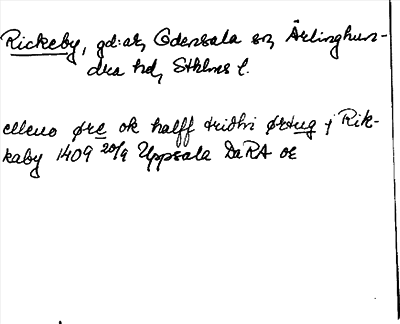 Rickeby, gd:ar, Odensala sn, Ärlinghun-
dra hd, Sthlms l.
elleuo øre ok halff tridhi ørtug j Rik-
kaby 1409 20/9 Uppsala DaRA or